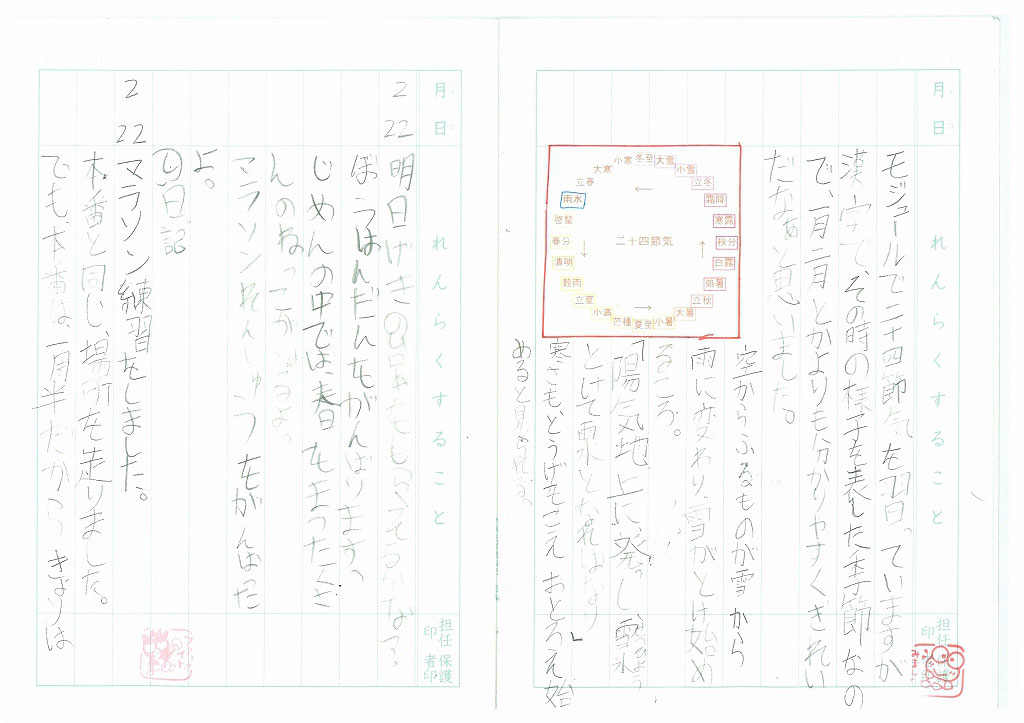 月日
れんらくすること
担任印
保護者印
モジュールで二十四節気を習っていますが
漢字で、その時の様子を表した季節なの
で、一月二月とかよりも分かりやすくきれい
だなぁと思いました。
二十四節気
冬至
大雪
小雪
立冬
霜降
寒露
秋分
白露
処暑
立秋
大暑
小暑
夏至
芒種
小満
立夏
穀雨
清明
春分
啓蟄
雨水
立春
大寒
小寒
空からふるものが雪から
雨に変わり、雪がとけ始め
るころ。
「陽気地上に発し、雪氷
とけて雨水となればなり」
寒さも、とうげをこえ おとろえ始
めると見られる。
みました
月日
れんらくすること
担任印
保護者印
2 22 明日げきの
ぼうはんだんもがんばります、
じめんの中では、春をまつたくさ
んのねっこが
マラソンれんしゅうをがんばった
よ。
日記
2 22 マラソン練習をしました。
本番と同じ、場所を走りました。
でも、本番は、一月半だから きょりは